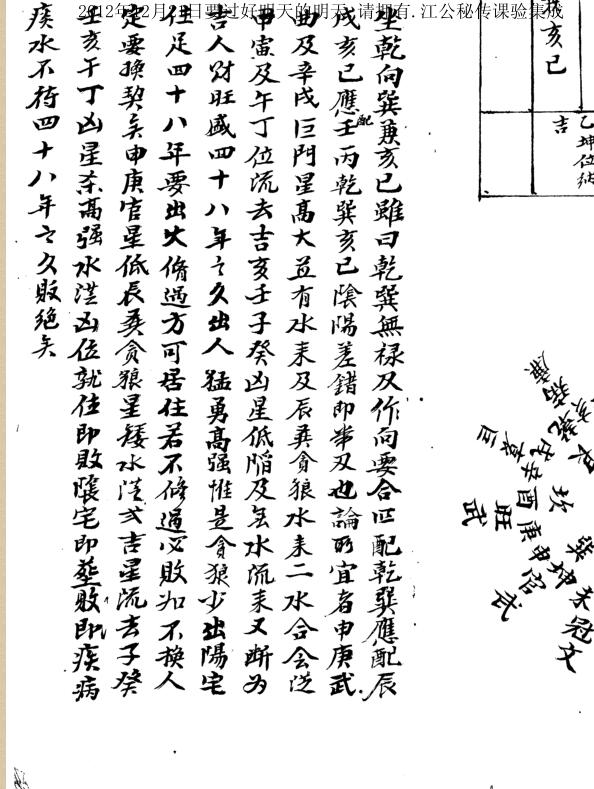 2012年12月21日要过好明天的明天,请拥有.江公秘传课验集成
亥巳
乙坤位納
吉
坐乾向巽兼亥巳雖曰乾巽無祿及作向要合四配乾巽應配辰
戌亥巳應配壬丙乾巽亥巳陰陽差錯即帶刃也論所宜者申庚武
曲及辛戌巨門星高大並有水来及辰巽貪狼水来二水合会從
申寅及午丁位流去吉亥壬子癸凶星低陷及無水流来又断为
吉人财旺盛四十八年之久出人猛勇高强惟是貪狼少出陽宅
住足四十八年要出火脩過方可居住若不脩過必敗如不换人
定要换契矣申庚官星低辰巽貪狼星矮水從弍吉星流去子癸
壬亥午丁凶星系高强水從凶位就位即敗陰宅即塟敗即疾病
疾水不待四十八年之久敗絕矣
庚
辛戌
乾亥
巨
坎
酉旺武
庚
申官武
坤
巽
未冠文